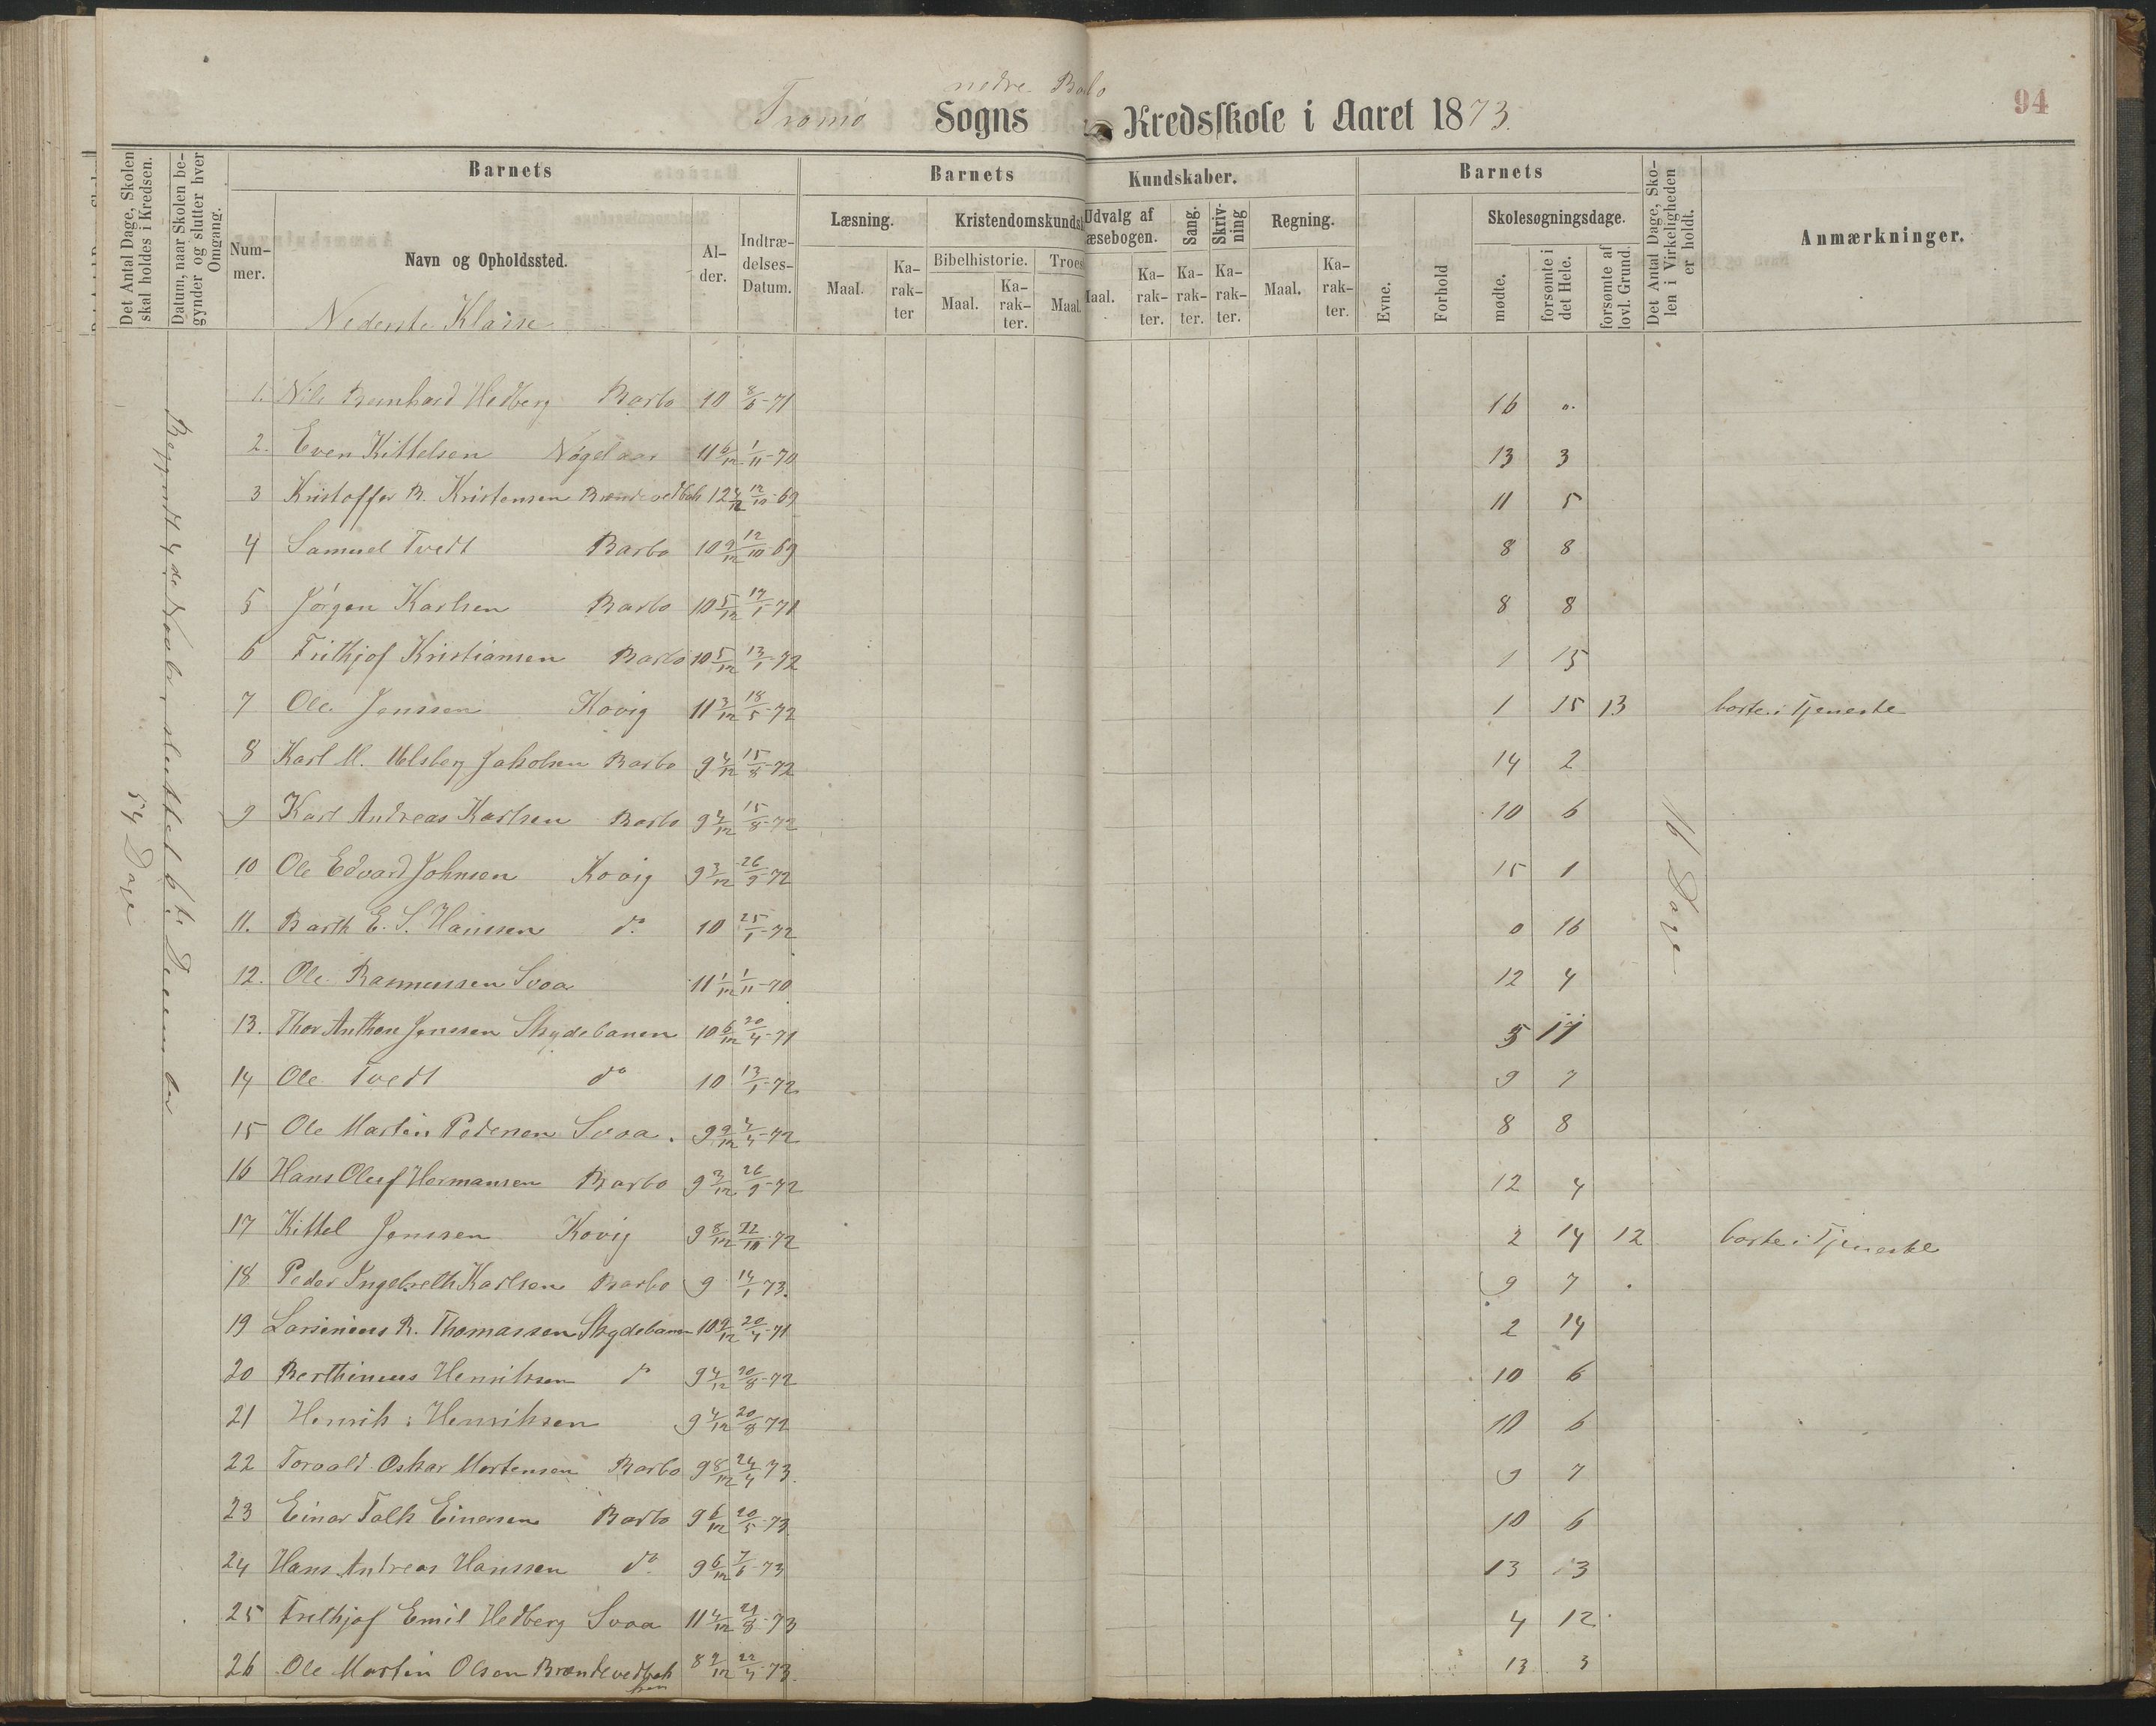 nedre Barbo
Tromø Sogns Kredsskole i Aaret 1873.
94
Det Antal Dage, Skolen skal holdes i Kredsen.
Datum, naar Skolen begynder og slutter hver Omgang.
Barnets
Barnets
Kundskaber.
Barnets
Det Antal Dage, Skolen i Virkeligheden er holdt.
Anmærkninger.
Nummer.
Navn og Opholdssted.
Alder.
Indtrædelses-Datum.
Læsning.
Kristendomskundsk
Udvalg af
æsebogen.
Sang.
Skrivning
Regning.
Skolesøgningsdage.
Bibelhistorie.
Troes
Maal.
Karakter
Maal.
Karakter.
Maal.
Maal.
Karakter.
Karakter.
Karakter.
Maal.
Karakter.
Evne.
Forhold
mødte.
forsømte i det Hele.
forsømte af lovl. Grund.
Nederste Klasse
Begyndt 4de Novbr, sluttet 6te December
54 Dage
16 Dage
1. Nils Bernhard Hedberg Barbo 10 8/6-71 16 0.
2. Even Kittelsen 11 6/12 1/11-70 13 3
3 Kristoffer B. Kristensen Brændevedbak 12 4/12 12/10-69 11 5
4 Samuel Tvedt Barbo 10 9/12 12/10-69 8 8
5 Jørgen Karlsen Barbo 10 5/12 17/1-71 8 8
6 Frithjof Kristiansen Barbo 10 5/12 13/1-72 1 15
7 Ole Jenssen Kovig 11 3/12 18/5-72 1 15 13 borte i Tjeneste
8 Karl M. Helsberg Jakobsen Barbo 9 4/12 15/8-72 14 2
9 Karl Andreas Karlsen Barbo 9 4/12 15/8-72 10 6
10 Ole Edvard Johnsen Kovig 9 3/12 26/9-72 15 1
11. Barth E. S. Hanssen do. 10 25/1-72 0 16
12. Ole Rasmussen Svaa 11 1/12 1/11-70 12 4
13. Thor Anthon Jenssen Skydebanen 10 6/12 20/4-71 5 11
14 Ole Tvedt do 10 13/1-72 9 7
15 Ole Martin Pedersen Svaa. 9 9/12 4/4-72 8 8
16 Hans Oluf Hermansen Barbo 9 3/12 26/9-72 12 4
17 Kittel Jenssen Kovig 9 8/12 22/10-72 2 14 12 borte i Tjeneste
18 Peder Ingebreth Karlsen Barbo 9 14/1 73. 9 7
19 Larsinius R. Thomassen Skydebanen 10 9/12 20/4-71 2 14
20 Berthinius Henriksen do 9 4/12 20/8-72 10 6
21 Henrik Henriksen 9 4/12 20/8 72 10 6
22 Torvald Oskar Mortensen Barbo 9 8/12 24/4 73. 9 7
23 Einar Falk Einersen Barbo 9 6/12 20/5-73 10 6
24 Hans Andreas Hanssen do. 9 6/12 7/6-73 13 3
25 Frithjof Emil Hedberg Svaa 11 4/12 21/8-73 4 12
26 Ole Martin Olsen Brændevedbakken 8 9/12 22/4-73. 13 3